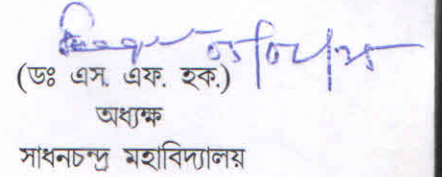 (ডঃ এস. এফ. হক.)
অধ্যক্ষ
সাধনচন্দ্র মহাবিদ্যালয়